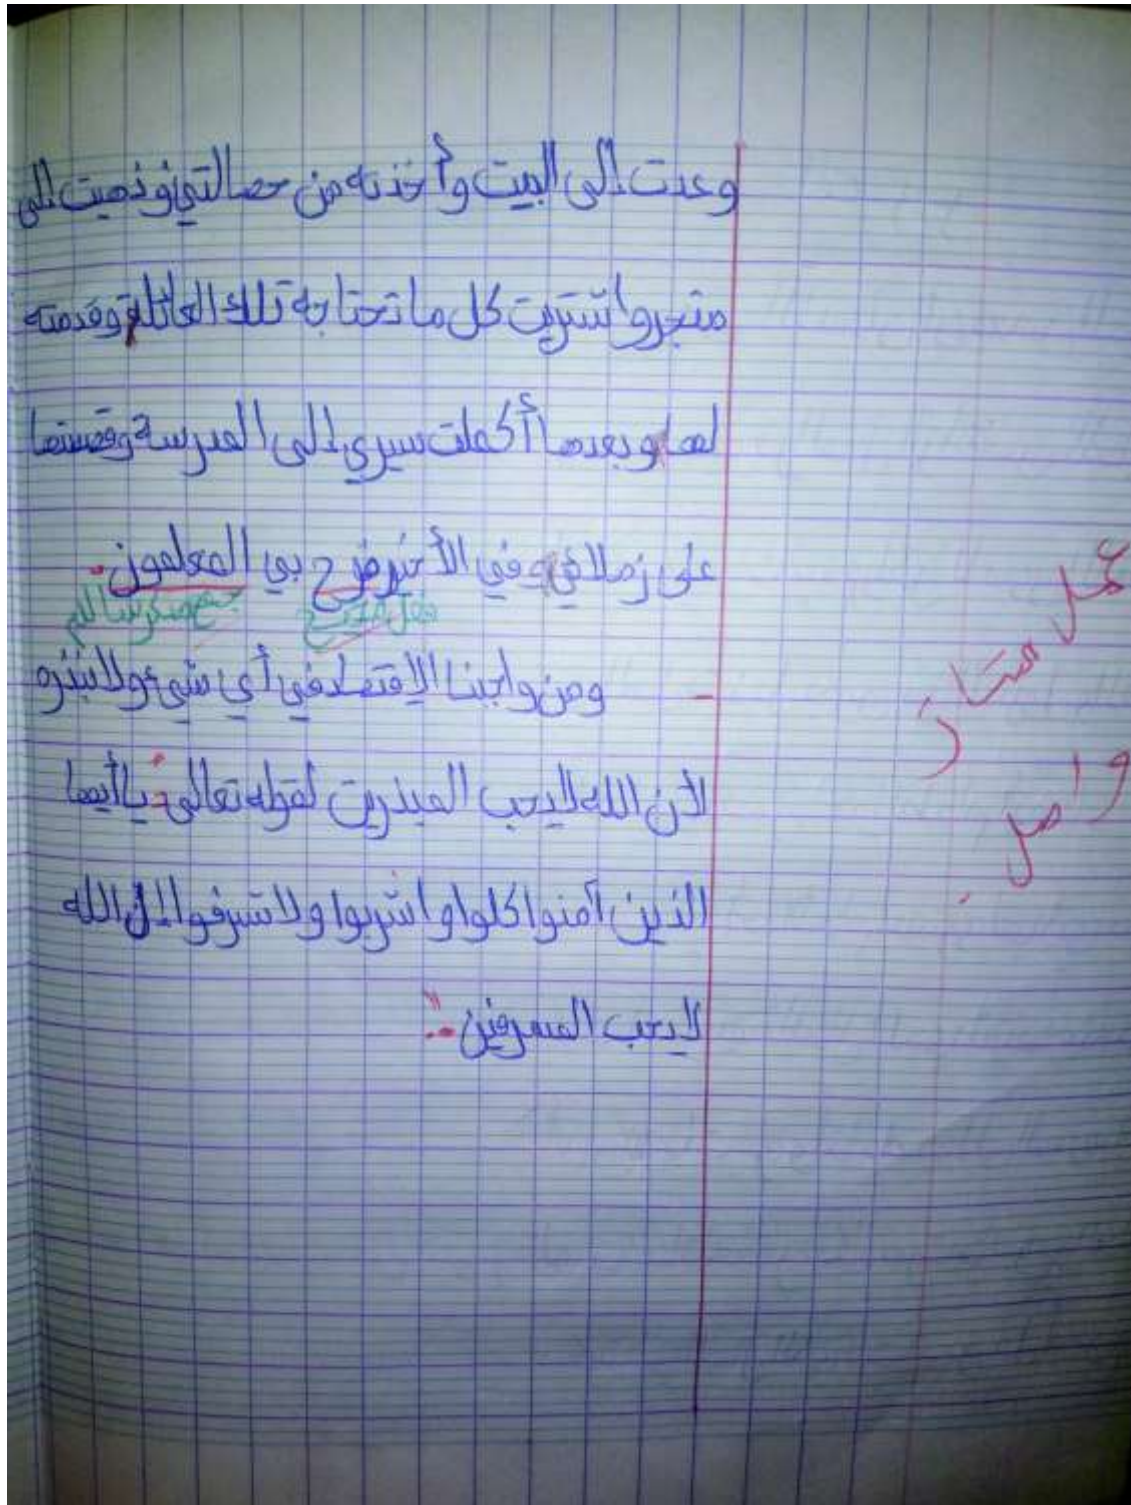 وعدت إلى البيت وأخذته من حصالتي وذهبت إلى
متجر واشتريت كل ما تحتاجه تلك العائلة وقدمته
لها وبعدها أكملت سيري إلى المدرسة وقصصتها
على زملائي وفي الأخير فرح بي المعلمون.
فعل صحيح جمع مذكر سالم
- ومن واجبنا الاقتصاد في أي شيء ولا نبذره
لأن الله لا يحب المبذرين لقوله تعالى: يا أيها
الذين آمنوا كلوا واشربوا ولا تسرفوا إن الله
لا يحب المسرفين".
عمل ممتاز
واصل.